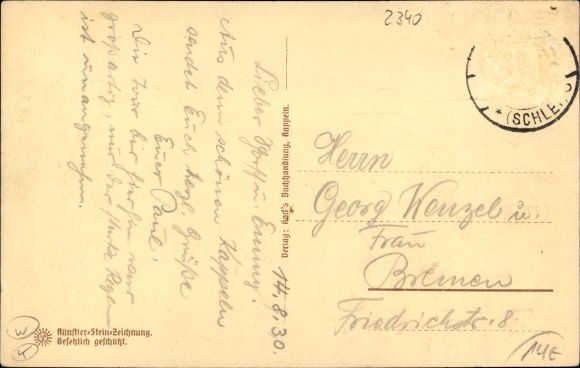 2340
(SCHLE
14.8.30.
Lieber & Emmy!
Aus dem schönen Kappeln
sendet Euch herzl. Grüße
Euer Paul.
Die Tour bis hierher war
großartig, nur der starke Regen
ist unangenehm.
Verlag: Buchhandlung, Kappeln.
Herrn
Georg Wenzel u.
Frau
Bremen
Friedrichstr. 8
Künstler-Stein-Zeichnung.
Gesetzlich geschützt.
14E